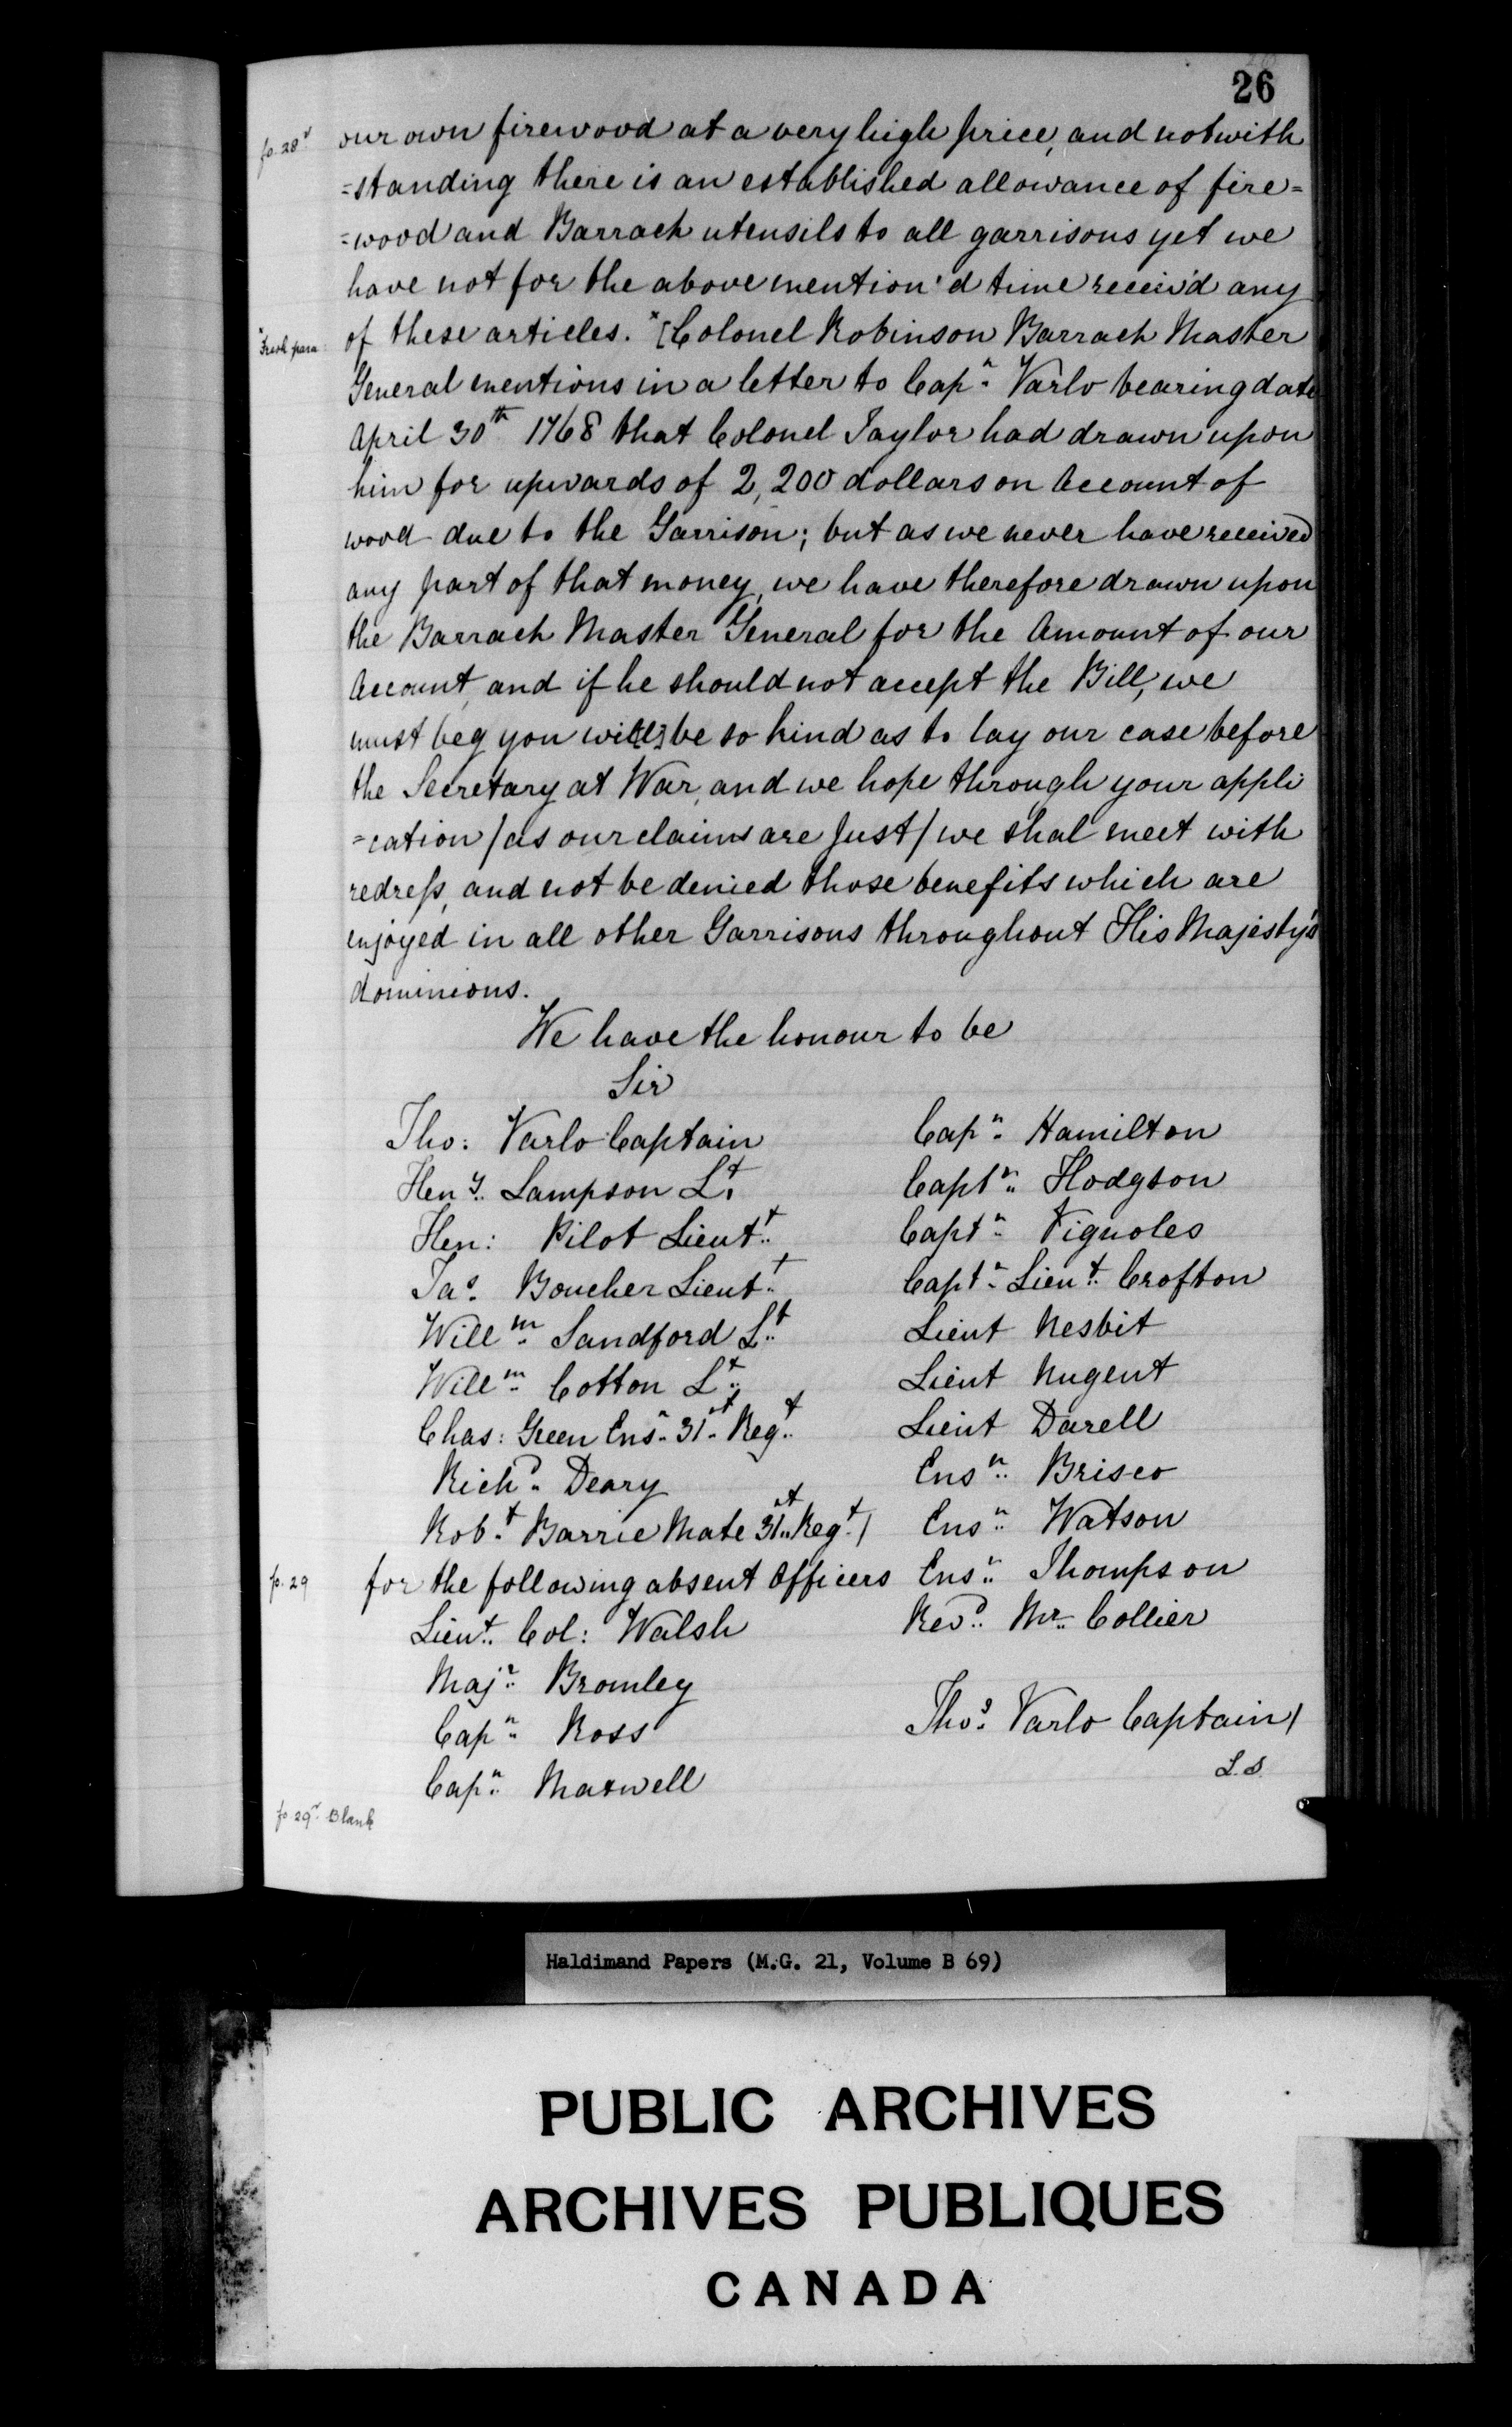 26
fo. 28v our own firewood at a very high price, and notwith
=standing there is an established allowance of fire=
=wood and Barrack utensils to all garrisons yet we
have not for the above mention'd time receiv'd any
"Fresh para: of these articles. "[Colonel Robinson Barrack Master
General mentions in a letter to Capn. Varlo bearing date
April 30th 1768 that Colonel Taylor had drawn upon
him for upwards of 2,200 dollars on Account of
wood due to the Garrison; but as we never have received
any part of that money, we have therefore drawn upon
the Barrack Master General for the Amount of our
Account, and if he should not accept the Bill, we
must beg you wil[l] be so kind as to lay our case before
the Secretary at War, and we hope through your appli
=cation /as our claims are Just/ we shal meet with
redreſs, and not be denied those benefits which are
enjoyed in all other Garrisons throughout His Majesty's
dominions.
We have the honour to be
Sir
Tho: Varlo Captain
Heny. Sampson Lt.
Hen: Pilot Lieutt.
Jas. Boucher Lieutt.
Willm. Sandford Lt.
Willm. Cotton Lt.
Chas: Green Ensn. 31st. Regt.
Richd. Deary
Robt. Barrie Mate 31st. Regt./
fo. 29 for the following absent Officers
Lieut. Col: Walsh
Majr. Bromley
Capn. Ross
Capn. Maxwell
Capn. Hamilton
Captn. Hodgson
Captn. Vignoles
Captn. Lieut. Crofton
Lieut Nesbit
Lieut Nugent
Lieut Darell
Ensn. Brisco
Ensn. Watson
Ensn. Thompson
Revd. Mr. Collier
Thos. Varlo Captain/
L.S.
fo. 29v. Blank
Haldimand Papers (M.G. 21, Volume B 69)
PUBLIC ARCHIVES
ARCHIVES PUBLIQUES
CANADA